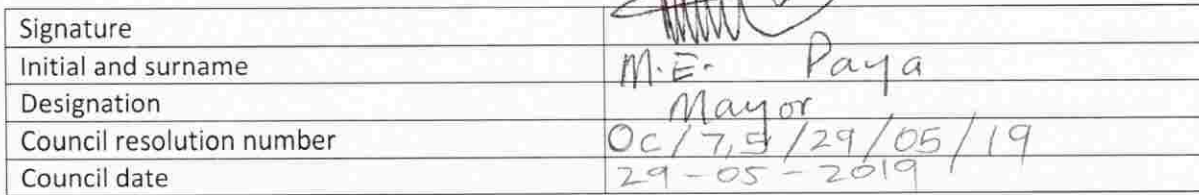 Signature
Initial and surname M.E. Paya
Designation Mayor
Council resolution number OC/7,5/29/05/19
Council date 29-05-2019